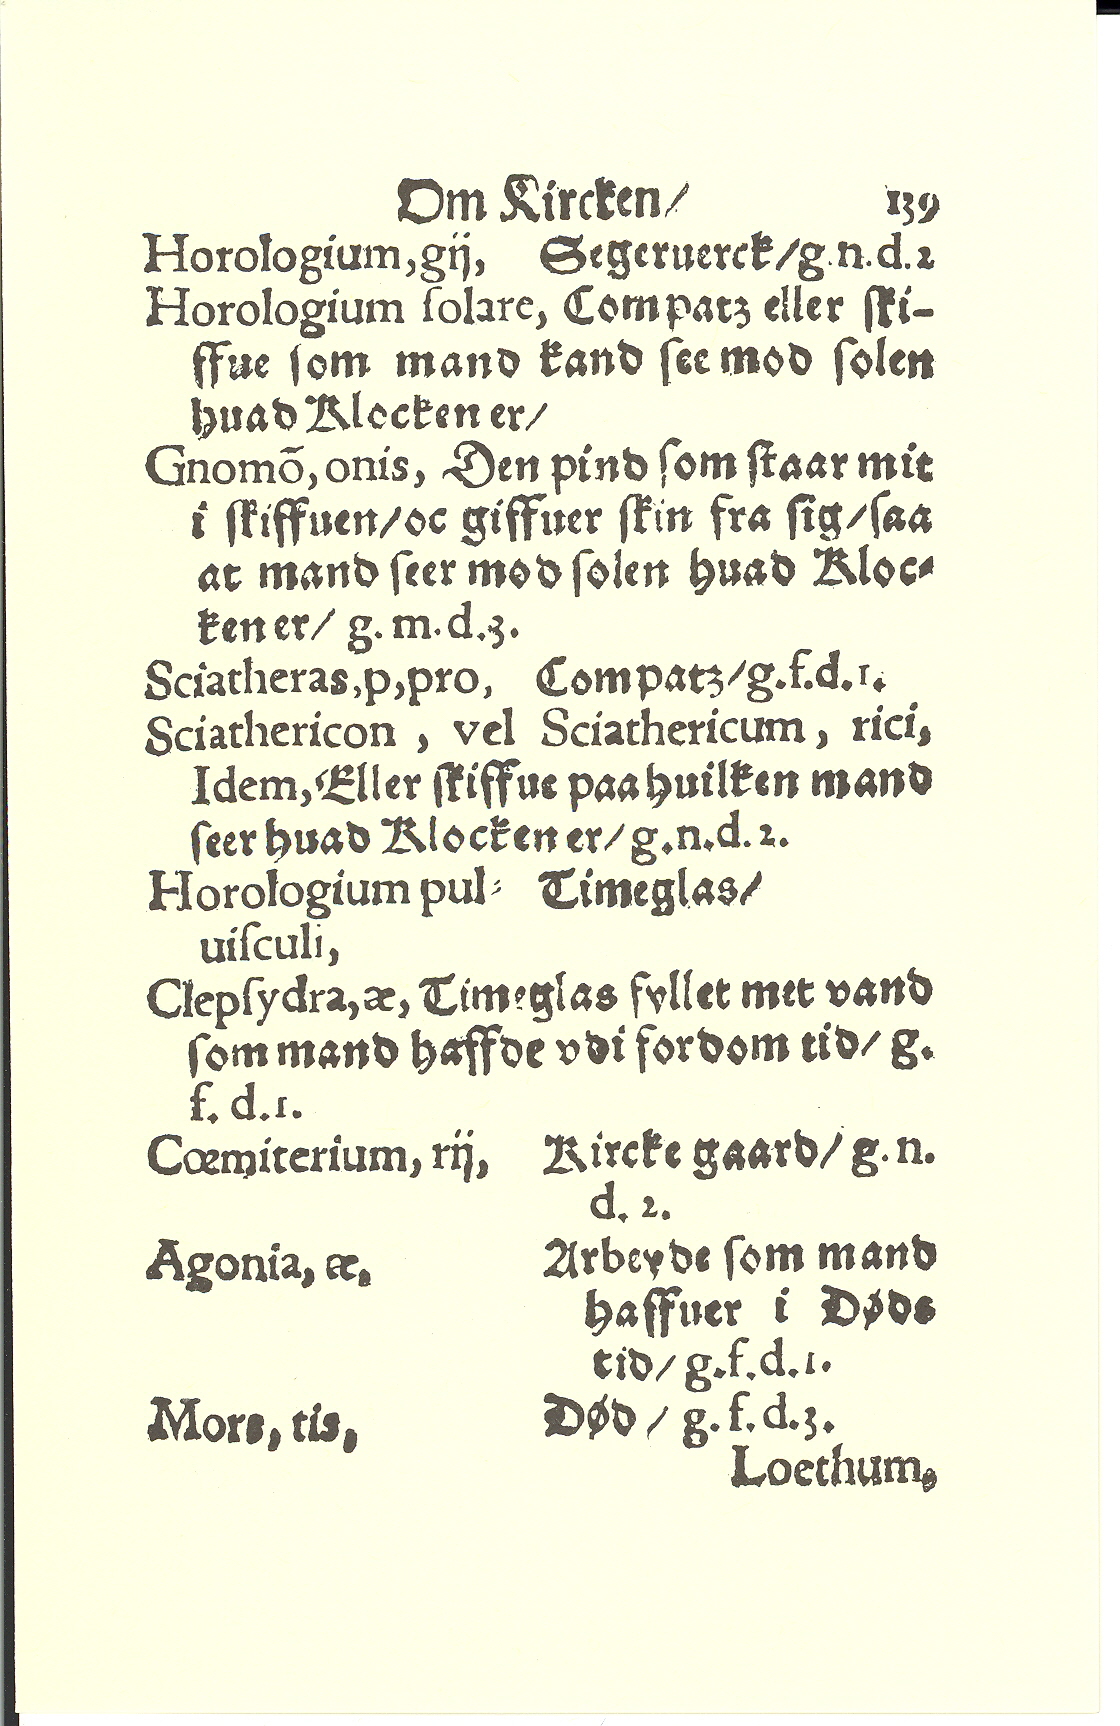 Om Kircken/ 139
Horologium, gij, Segeruerck/g.n.d.2
Horologium ſolare, Compatz eller ſki-
ffue ſom mand kand ſee mod ſolen
huad Klocken er/
Gnomõ, onis, Den pind ſom ſtaar mit
i ſkiffuen/oc giffuer ſkin fra ſig/ſaa
at mand ſeer mod ſolen huad Kloc-
ken er/ g.m.d.3.
Sciatheras,p,pro, Compatz/g.f.d.1.
Sciathericon, vel Sciathericum, rici,
Idem, Eller ſkiffue paa huilken mand
ſeer huad Klocken er/g.n.d.2.
Horologium pul- Timeglas/
uiſculi,
Clepſydra,æ, Timeglas fyllet met vand
ſom mand haffde vdi fordom tid/ g.
f. d.1.
Cœmiterium, rij, Kircke gaard/ g.n.
d. 2.
Agonia, æ, Arbeyde ſom mand
haffuer i Døds
tid/ g.f.d.1.
Mors, tis, Død / g.f.d.3.
Loethum,